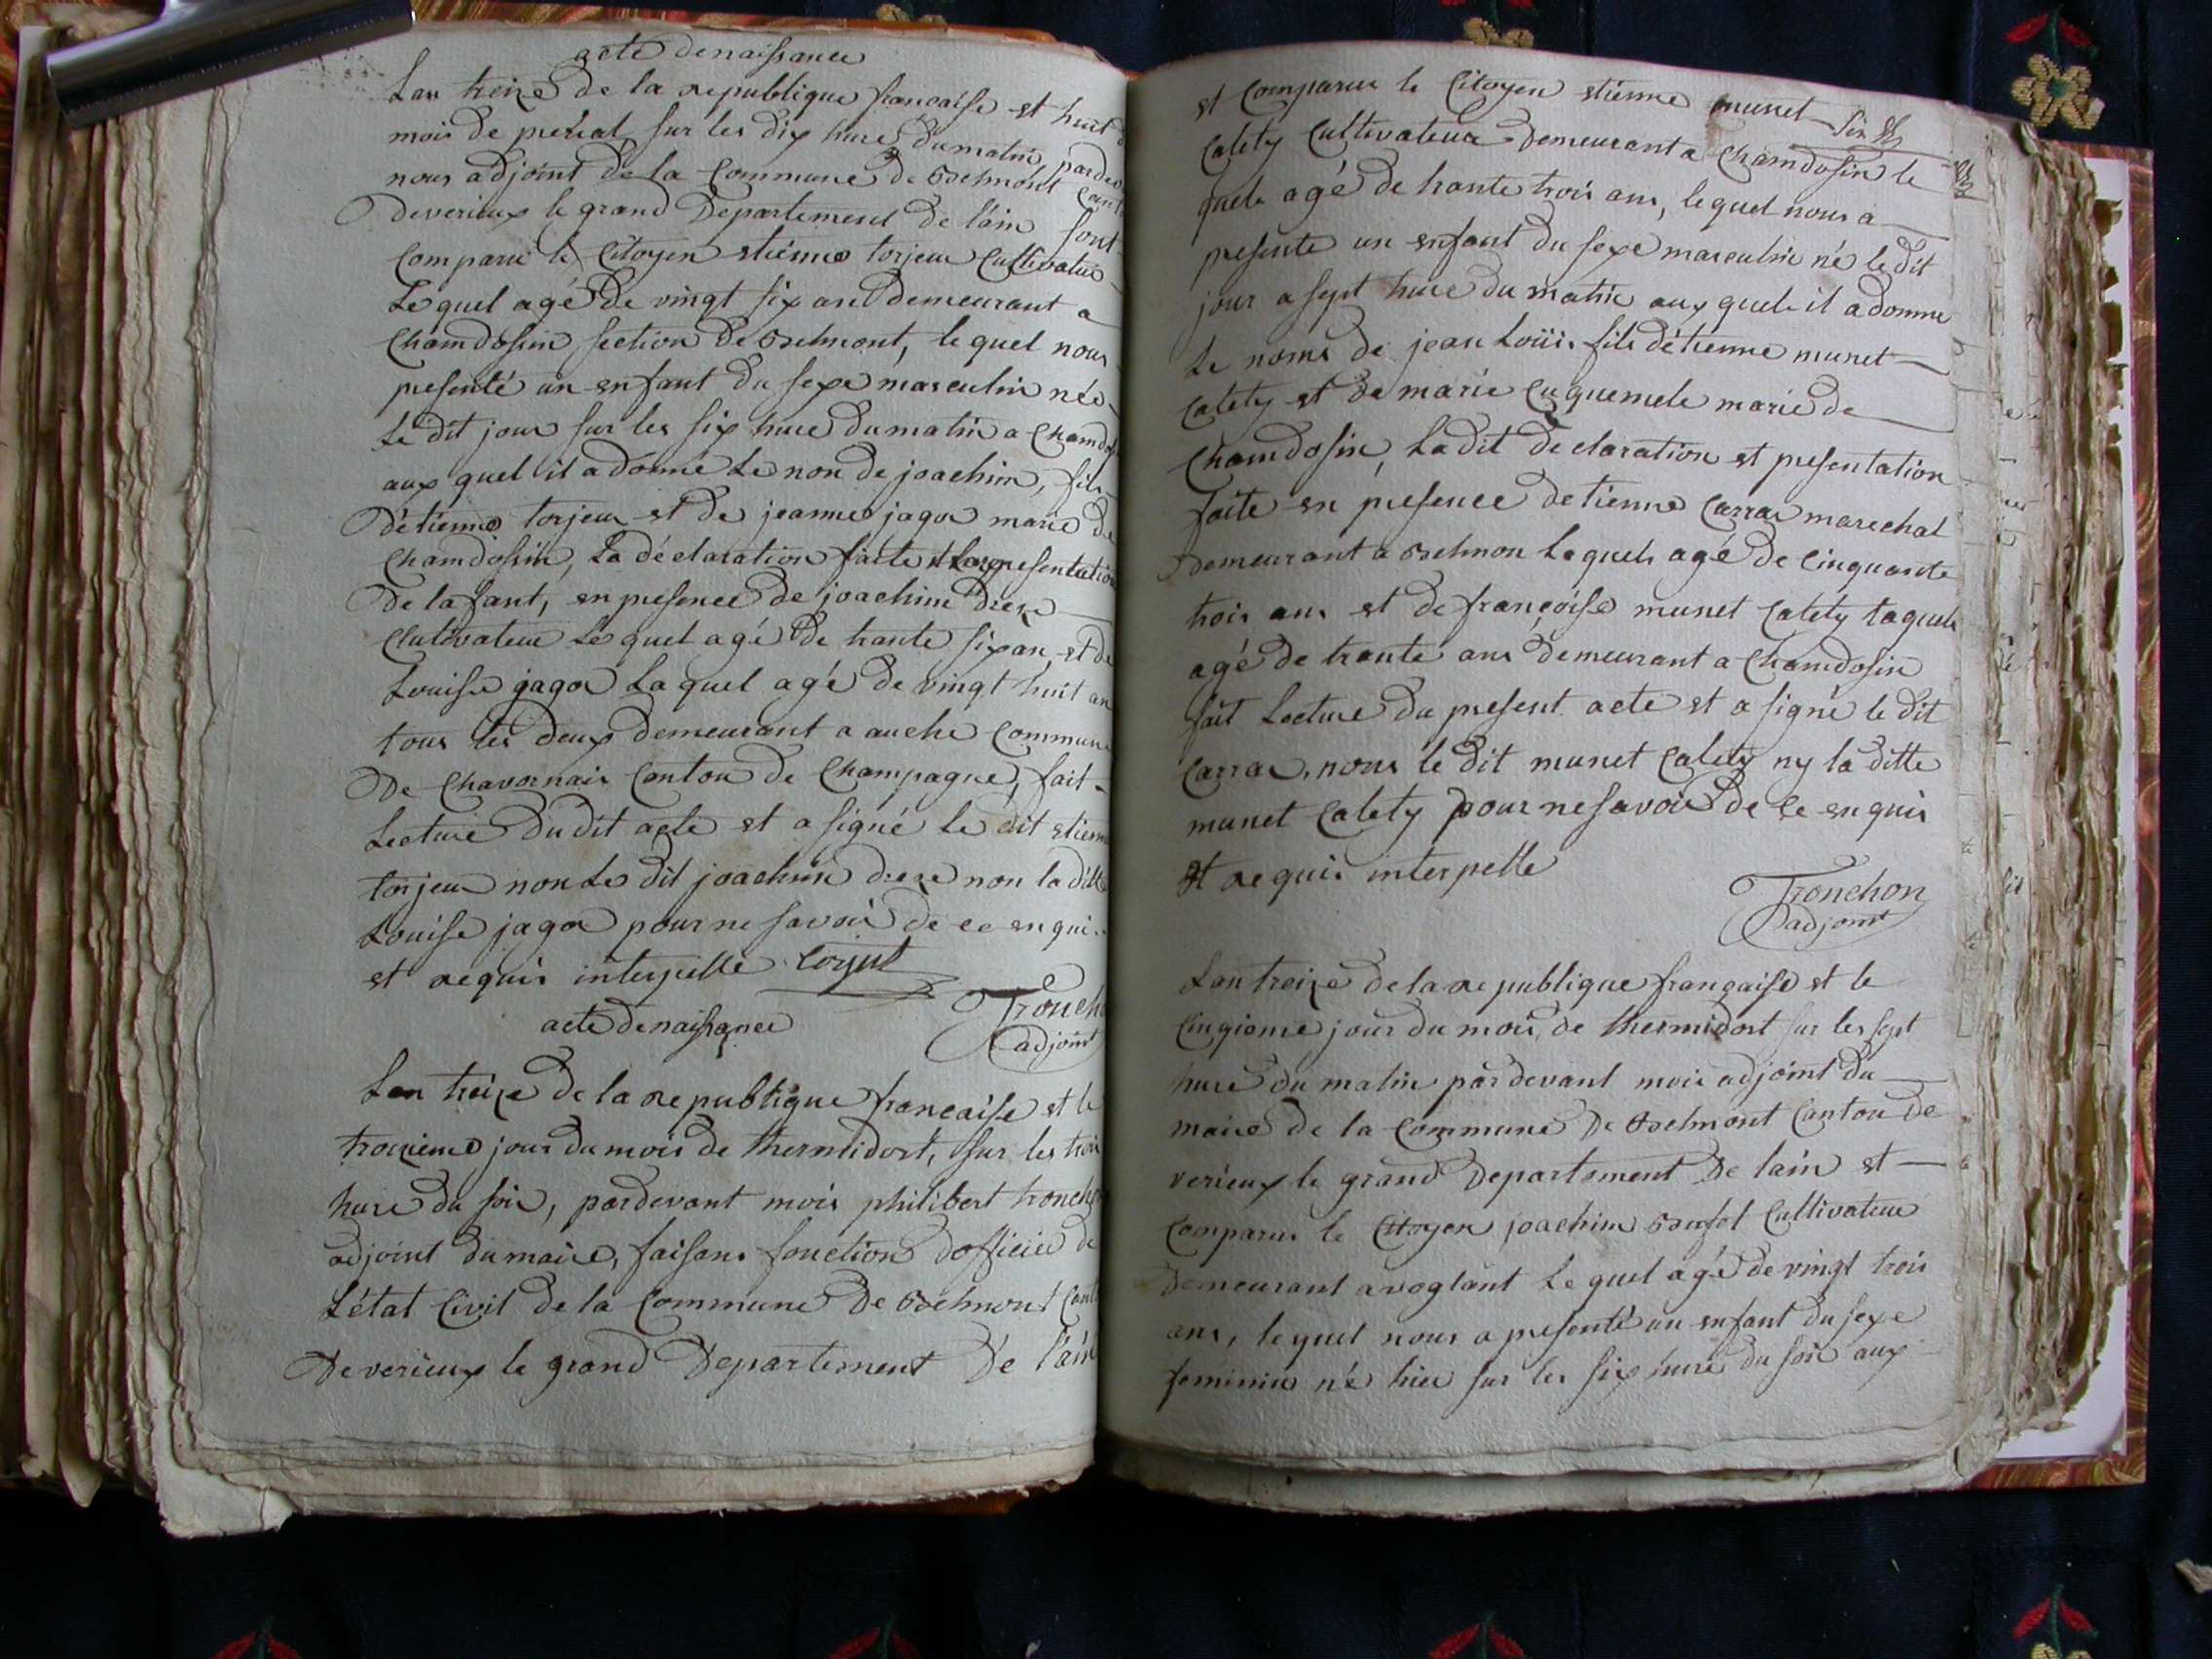 acte denaissance
Lan treize de la republique francaise et huit d
mois de prerial sur les dix hure du matin pardev
nous adjoint de la Commune de Belmont Cant
deverieux le grand Departement de l'ain sont
Comparu le Citoyen etienne torjeux Cultivateur
Le quel agé de vingt six ans demeurant a
Chamdosin section de Belmont, le quel nous
presenté un enfant du sexe masculin née
Le dit jour sur les six hure du matin a Chamdos
aux quel il a donné Le non de joachim, fils
d'etienne torjeux et de jeanne jagou marié de
Chamdosin, La déclaration faite et La presentation
De lafant, en presence de joachim
Cultivateur Le quel agé de trante six an et de
Louise jagou La quel agé de vingt huit an
tous les deux demeurant a auche Commune
De Chavornais Canton de Champagne, fait
Lecture du dit acte et a signé Le dit etienne
torjeux non Le dit joachim non la ditte
Louise jagou pour ne savoir de ce enquis
et requis interpellé
Tronch
adjoint
acte denaissance
Lan treize de la republique francaise et le
troizieme jour du mois de thermidort, sur les trois
hure du soir, pardevant mois philibert tronch
adjoint du maire, faisans fonction dofficier de
L'état Civil de la Commune de Belmont Cant
De verieux le grand Departement De l'ain
et Comparue le Citoyen etienne munet
Calety Cultivateur Demeurant a Chamdosin le
quele agé de trante trois ans, le quel nous a
presente un enfant du sexe masculin né le dit
jour a sept hure du matin aux quele il a donne
Le noms de jean Loüis fils détienne munet
Calety et de marie Cuquemele marié de
Chamdosin, La dit declaration et presentation
faite en presence detienne Carrar marechal
Demeurant a Belmon Lequels agé de Cinquante
trois ans et de françoise munet Calety laquele
agé de trante ans demeurant a Chamdosin
fait Lecture du present acte et a signé le dit
Carrar, nous le dit munet Calety ny la ditte
munet Calety pour ne savoir de Ce enquis
Et requis interpelle
Tronchon
adjoint
Lan treize de la republique française et le
Cinqieme jour du mois, de thermidort sur les sept
hure du matin pardevant mois adjoint du
maire de la Commune De Belmont Canton De
verieux le grand Departement De lain et
Comparus le Citoyen joachim Cultivateur
Demeurant a voglant Le quel agé de vingt trois
ans, le quel nous a presenté un enfant du sexe
feminin né hier sur les six hure du soir aux